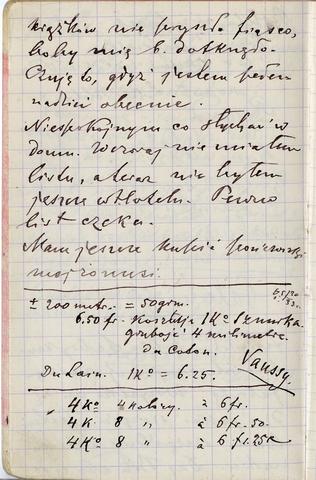 książków nie przyszło fiasco,
boby mię b. dotknęło.
Czuję to, gdyż jestem pełen
nadziei obecnie.
Niespokojnym co słychać w
domu. Wczoraj nie miałem
listu, a teraz nie byłem
jeszcze w Hotelu. Pewno
list czeka.
Mam jeszcze kupić
mojżonusi.
± 200 metr. = 50 grm.
6.50 fr. kosztuje 1Kº Sznurka
grubość 4 milimetr.
Du Coton.
Vaussy.
Du Lain. 1Kº = 6.25.
4Kº 4 kolory. à 6 fr.
4 K. 8 " à 6 fr. 50.
4Kº 8 " à 6 fr. 25c